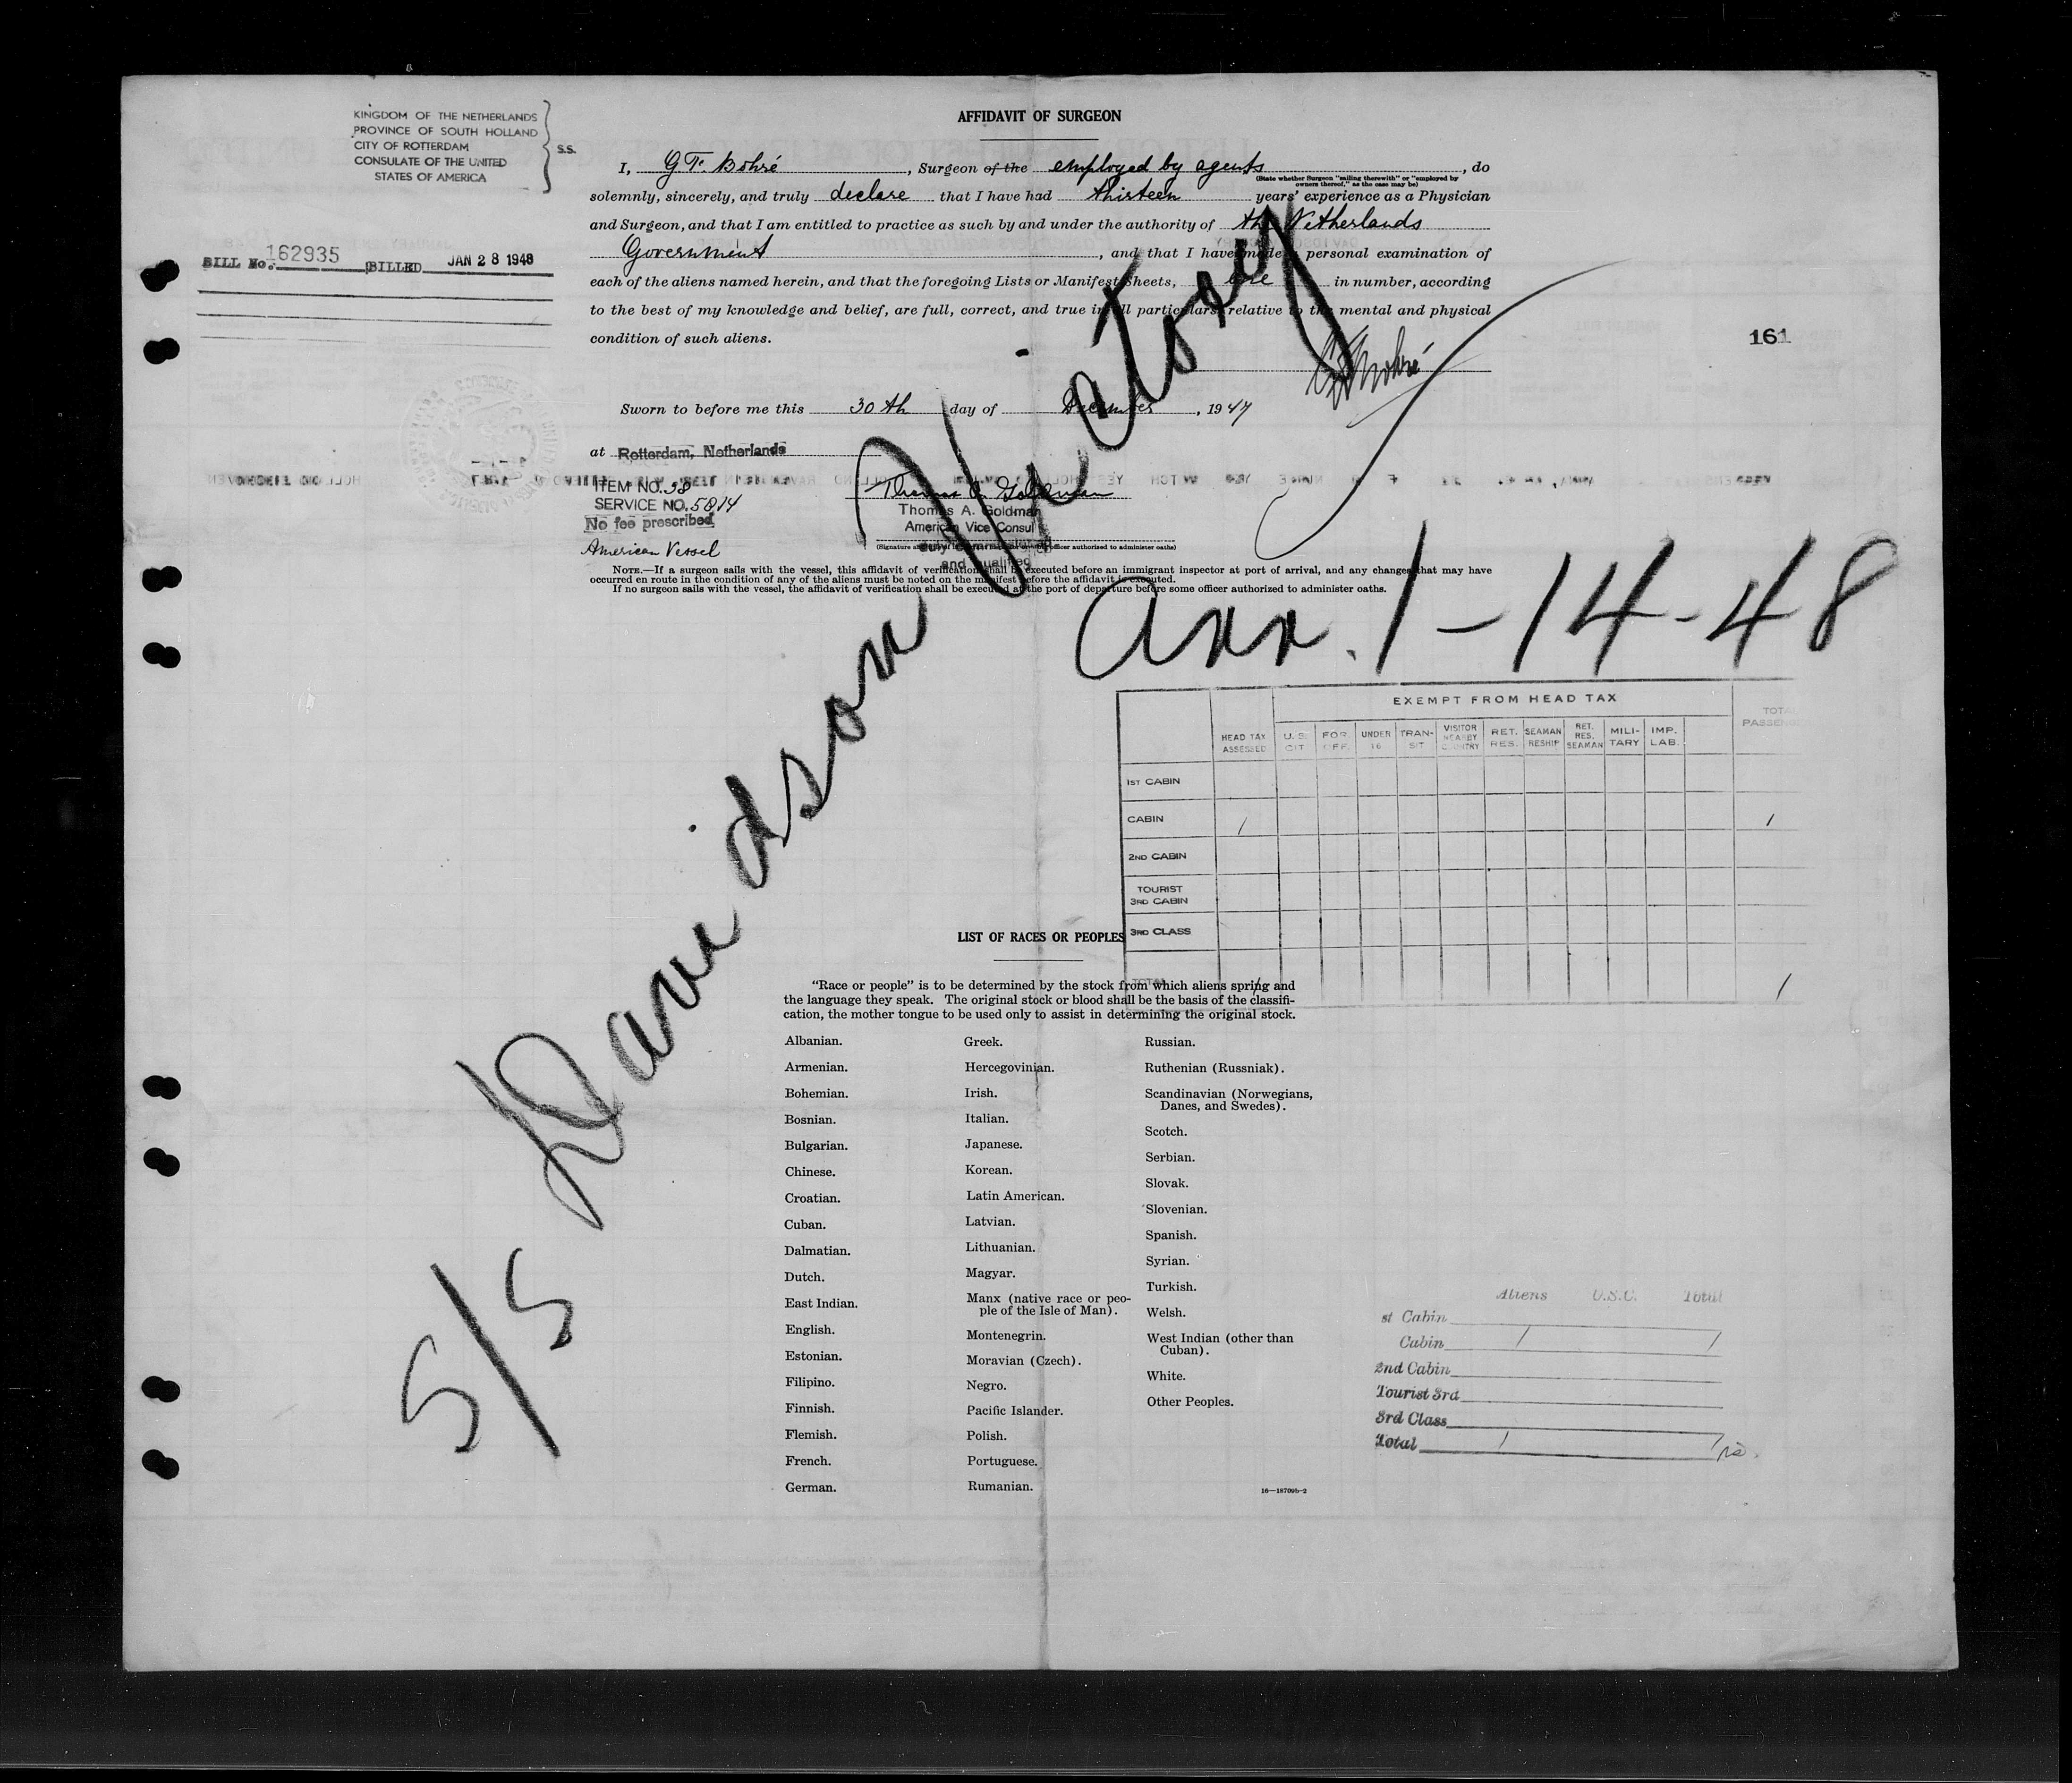 KINGDOM OF THE NETHERLANDS
PROVINCE OF SOUTH HOLLAND
CITY OF ROTTERDAM
CONSULATE OF THE UNITED
STATES OF AMERICA
S.S.
BILL No. 162935 BILLED JAN 28 1948
AFFIDAVIT OF SURGEON
I, Bohré, Surgeon of the employed by agents, do
(State whether Surgeon "sailing therewith" or "employed by
owners thereof," as the case may be)
solemnly, sincerely, and truly declare that I have had thirteen years' experience as a Physician
and Surgeon, and that I am entitled to practice as such by and under the authority of the Netherlands
Government, and that I have made a personal examination of
each of the aliens named herein, and that the foregoing Lists or Manifest Sheets, one in number, according
to the best of my knowledge and belief, are full, correct, and true in all particulars relative to the mental and physical
condition of such aliens.
161
Sworn to before me this 30th day of December, 1947
at Rotterdam, Netherlands
ITEM NO. 38
SERVICE NO. 5814
No fee prescribed
American Vessel
Thomas A. Goldman
Thomas A. Goldman
American Vice Consul
duly commissioned
and qualified
NOTE.—If a surgeon sails with the vessel, this affidavit of verification shall be executed before an immigrant inspector at port of arrival, and any changes that may have
occurred en route in the condition of any of the aliens must be noted on the manifest before the affidavit is executed.
If no surgeon sails with the vessel, the affidavit of verification shall be executed at the port of departure before some officer authorized to administer oaths.
S/S Davidson Victory
Arr. 1-14-48
EXEMPT FROM HEAD TAX
HEAD TAX ASSESSED
U.S. CIT
FOR. OFF.
UNDER 16
TRAN-SIT
VISITOR NEARBY COUNTRY
RET. RES.
SEAMAN RESHIP
RET. RES. SEAMAN
MILI-TARY
IMP. LAB.
TOTAL PASSENGERS
1ST CABIN
CABIN 1 1
2ND CABIN
TOURIST
3RD CABIN
3RD CLASS
TOTAL 1 1
LIST OF RACES OR PEOPLES
"Race or people" is to be determined by the stock from which aliens spring and
the language they speak. The original stock or blood shall be the basis of the classifi-
cation, the mother tongue to be used only to assist in determining the original stock.
Albanian.
Armenian.
Bohemian.
Bosnian.
Bulgarian.
Chinese.
Croatian.
Cuban.
Dalmatian.
Dutch.
East Indian.
English.
Estonian.
Filipino.
Finnish.
Flemish.
French.
German.
Greek.
Hercegovinian.
Irish.
Italian.
Japanese.
Korean.
Latin American.
Latvian.
Lithuanian.
Magyar.
Manx (native race or peo-
ple of the Isle of Man).
Montenegrin.
Moravian (Czech).
Negro.
Pacific Islander.
Polish.
Portuguese.
Rumanian.
Russian.
Ruthenian (Russniak).
Scandinavian (Norwegians,
Danes, and Swedes).
Scotch.
Serbian.
Slovak.
Slovenian.
Spanish.
Syrian.
Turkish.
Welsh.
West Indian (other than
Cuban).
White.
Other Peoples.
16—18709b-2
Aliens U.S.C. Total
st Cabin
Cabin 1 1
2nd Cabin
Tourist 3rd
3rd Class
Total 1 1